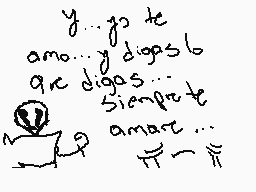 y...yo te
amo...y digas lo
que digas...
siempre te
amare...